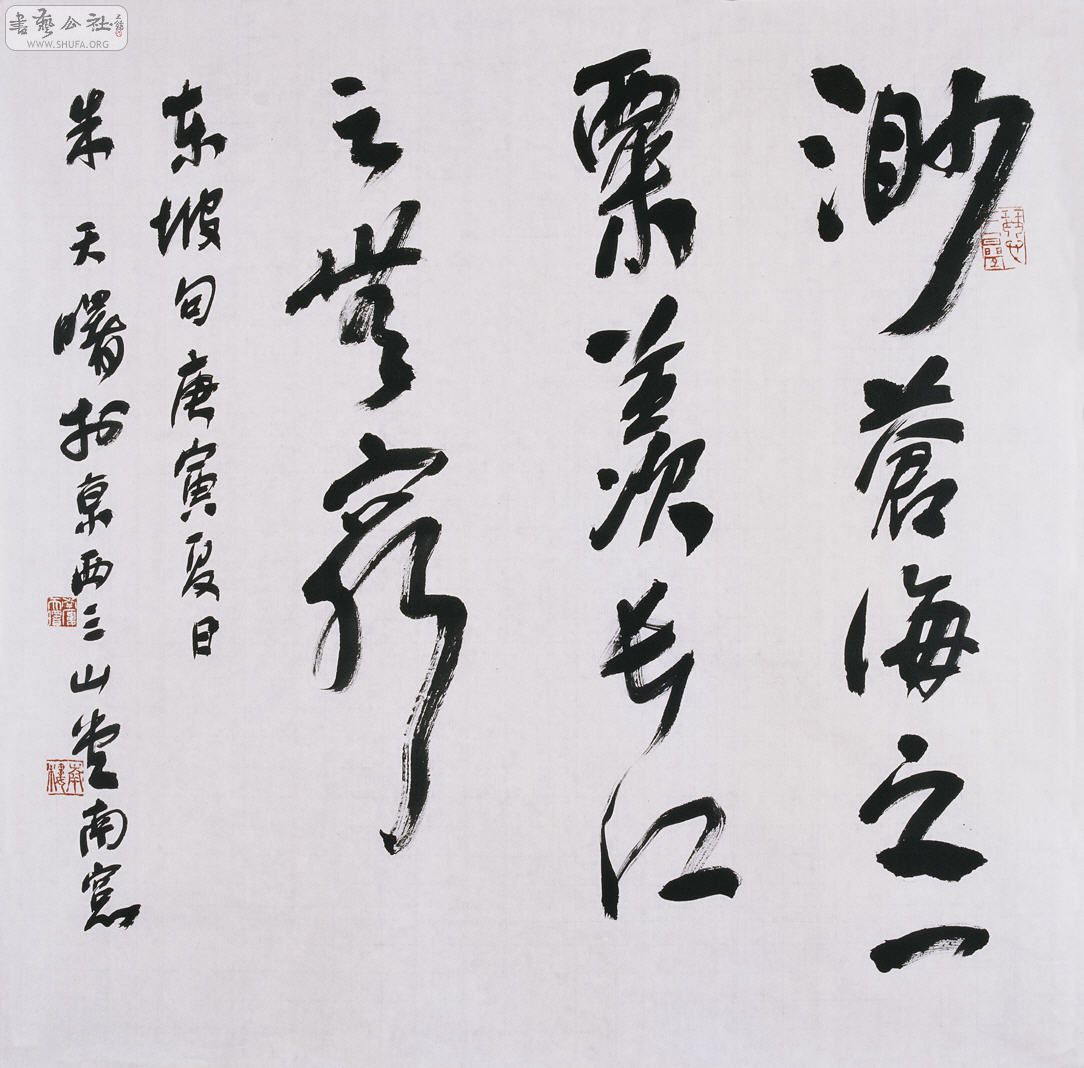 渺蒼海之一
粟羨长江
之無窮
东坡句庚寅夏日
朱天曙於京西三山堂南窓
書藝公社
WWW.SHUFA.ORG